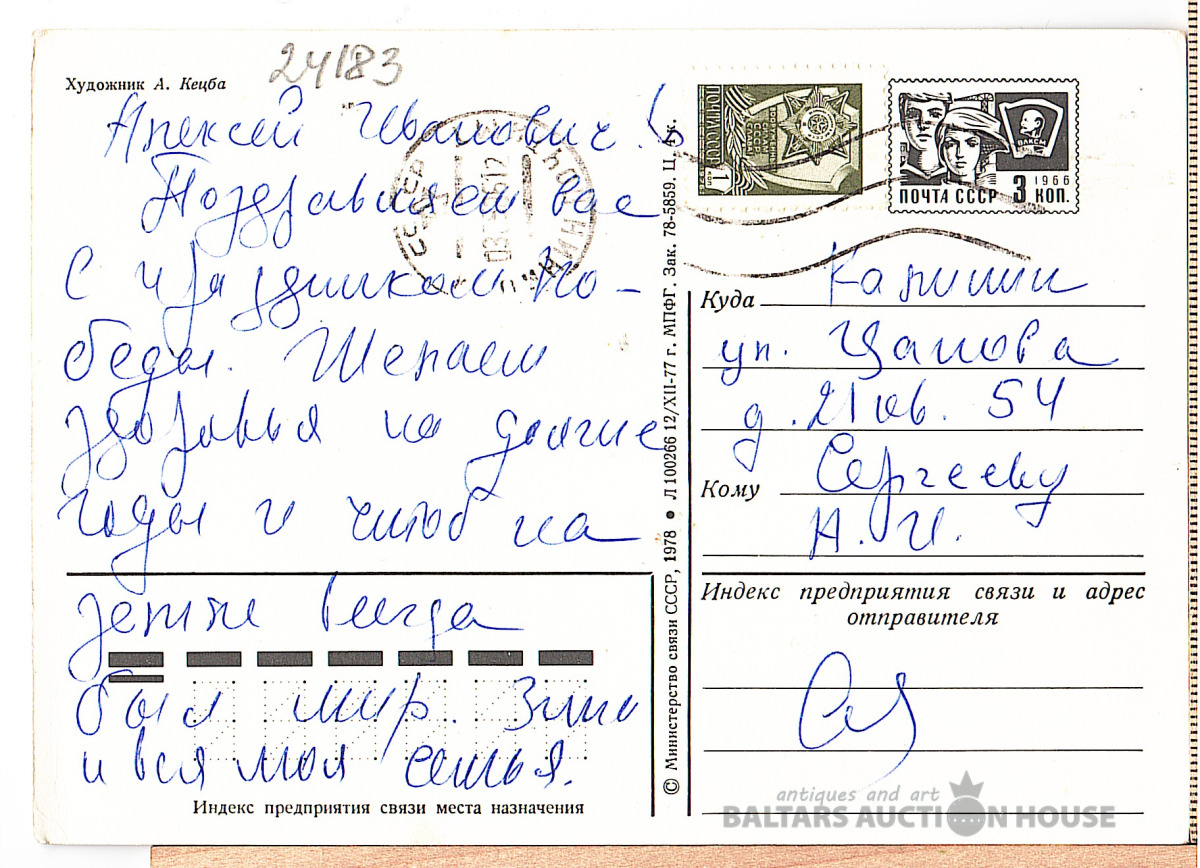 24183
Художник А. Кецба
Алексей Иванович!
Поздравляем вас
с праздником По-
беды. Желаем
здоровья на долгие
годы и чтоб на
земле всегда
был мир. Зина
и вся моя семья.
Индекс предприятия связи места назначения
© Министерство связи СССР, 1978 • Л 100266 12/XII-77 г. МПФГ. Зак. 78-5859. Ц. 4 к.
ПОЧТА СССР
1 КОП
ВЛКСМ
1966
ПОЧТА СССР 3 КОП.
Куда Калинин
ул. Чапова
д. 21 кв. 54
Кому Сергееву
А. И.
Индекс предприятия связи и адрес
отправителя
antiques and art
BALTARS AUCTION HOUSE